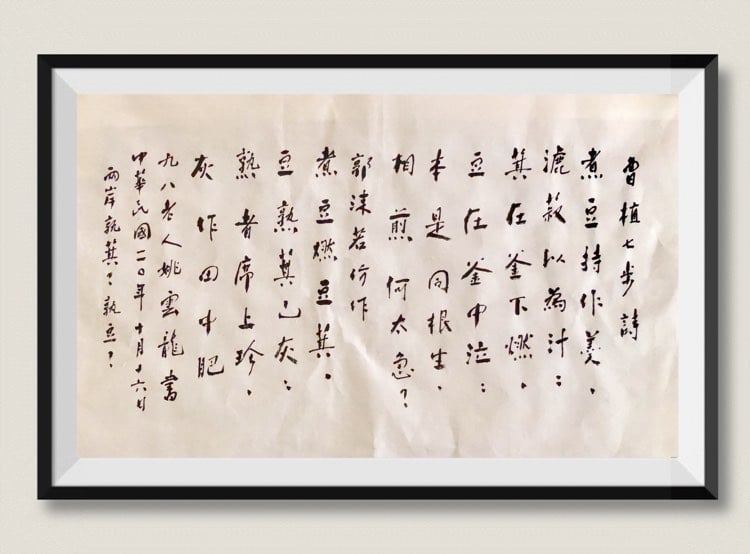 曹植七步詩
煮豆持作羹，
漉菽以為汁：
萁在釜下燃，
豆在釜中泣：
本是同根生，
相煎何太急？
郭沫若仿作
煮豆燃豆萁，
豆熟萁已灰：
熟者席上珍，
灰作田中肥
九八老人姚雲龍書
中華民國一一〇年十月十六日
兩岸孰萁？孰豆？